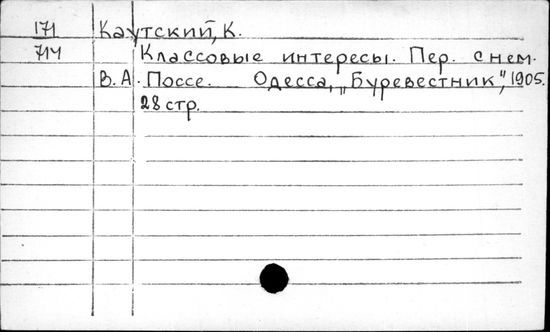 171 Каутский, К.
714 Классовые интересы. Пер. с нем.
В. А. Поссе. Одесса, „Буревестник", 1905.
28 стр.